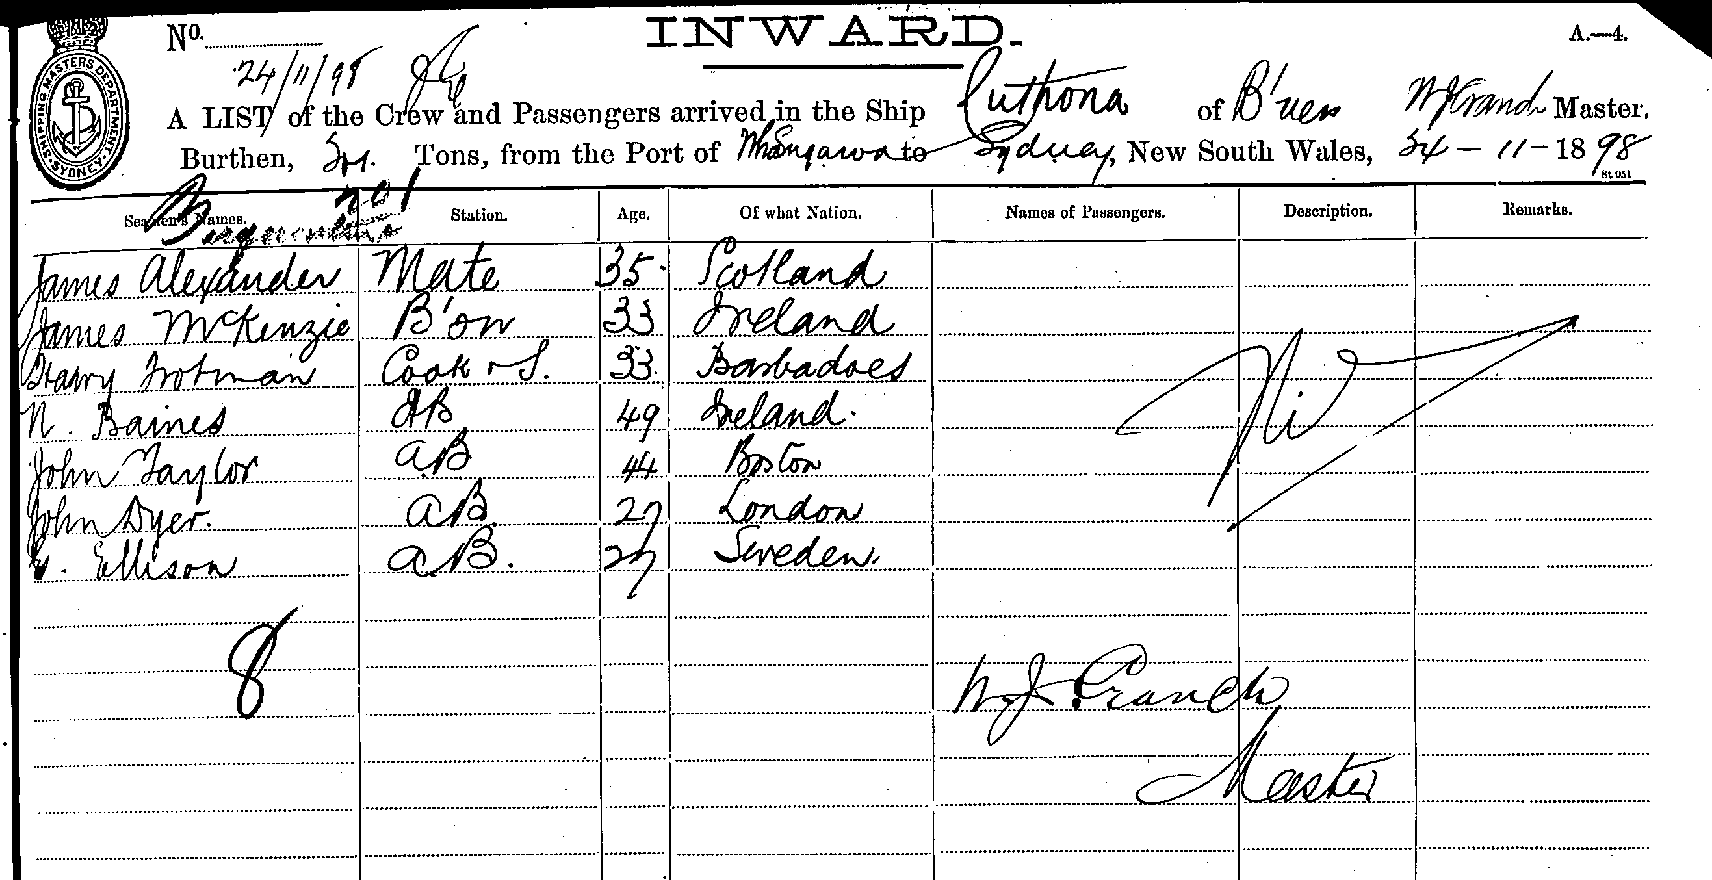 No. INWARD. A.—4.
24/11/98
A LIST of the Crew and Passengers arrived in the Ship Euthona of B'ues W J Cranch Master,
Burthen, Tons, from the Port of to Sydney, New South Wales, 24 - 11 - 1898
St. 951
SHIPPING MASTERS DEPARTMENT SYDNEY
201
Seamen's Names. Station. Age. Of what Nation. Names of Passengers. Description. Remarks.
James Alexander Mate 35 Scotland
James McKenzie B'on 33 Ireland
Harry Trotman Cook & S. 33 Barbadoes
N. Baines AB 49 Ireland.
John Taylor AB 44 Boston
John Dyer. AB 27 London
Ellison AB. 27 Sweden.
Nil
8
W J Cranch
Master